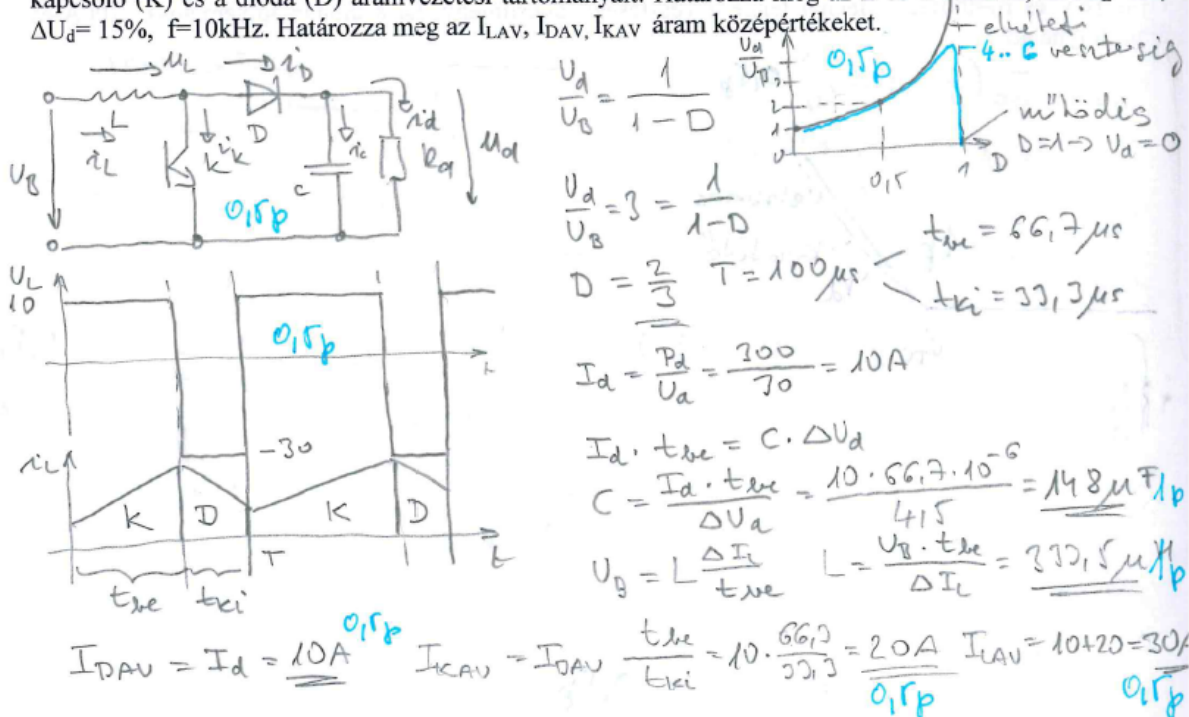 kapcsoló (K) és a dióda (D) áramvezetési tartományait. Határozza meg az
ΔU_d= 15%, f=10kHz. Határozza meg az I_LAV, I_DAV, I_KAV áram középértékeket.
u_L i_D
L D
i_L i_K K i_c C i_d R_d u_d
U_B
0,5p
U_d/U_B = 1/(1-D)
U_d/U_B
0,5p
elméleti
4..6 veszteség
2
1
0
0,5 1 D
működés
D=1 -> U_d = 0
U_d/U_B = 3 = 1/(1-D)
D = 2/3 T = 100µs
t_be = 66,7 µs
t_ki = 33,3 µs
U_L
10
0,5p
t
-30
i_L
K D K D
T t
t_be t_ki
I_d = P_d/U_d = 300/30 = 10A
I_d · t_be = C · ΔU_d
C = I_d · t_be/ΔU_d = 10 · 66,7 · 10^-6/4,5 = 148µF 1p
U_B = L ΔI_L/t_be L = U_B · t_be/ΔI_L = 333,5µH 1p
I_DAV = I_d = 10A 0,5p I_KAV = I_DAV t_be/t_ki = 10 · 66,7/33,3 = 20A 0,5p I_LAV = 10+20 = 30A 0,5p